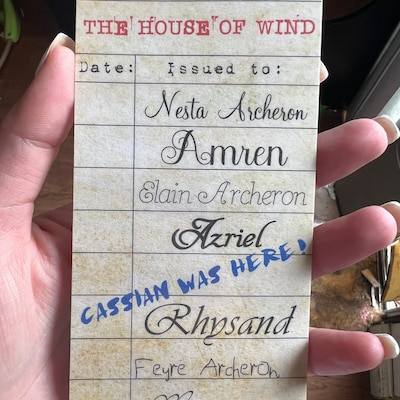 THE HOUSE OF WIND
Date: Issued to:
Nesta Archeron
Amren
Elain Archeron
Azriel
CASSIAN WAS HERE!
Rhysand
Feyre Archeron